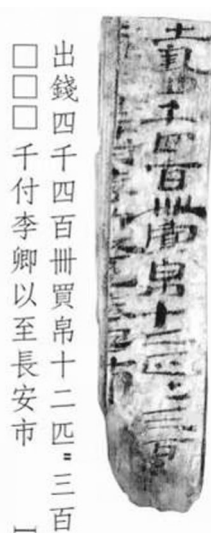 出錢四千四百卌買帛十二匹〓三百
□□□千付李卿以至長安市